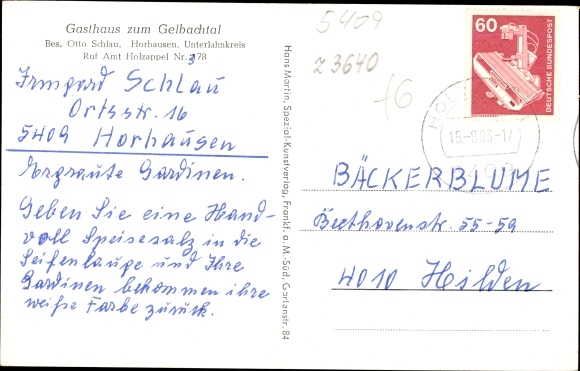 Gasthaus zum Gelbachtal
Bes. Otto Schlau, Horhausen, Unterlahnkreis
Ruf Amt Holzappel Nr. 378
Irmgard Schlau
Ortsstr. 16
5409 Horhausen
Ergraute Gardinen.
Geben Sie eine Hand-
voll Speisesalz in die
Seifenlauge und Ihre
Gardinen bekommen ihre
weiße Farbe zurück.
Hans Martin, Spezial-Kunstverlag, Frankf. a. M.-Süd, Gartenstr. 84
5409
z 3640
60
DEUTSCHE BUNDESPOST
15.-8.83-17
BÄCKERBLUME
Beethovenstr. 55-59
4010 Hilden